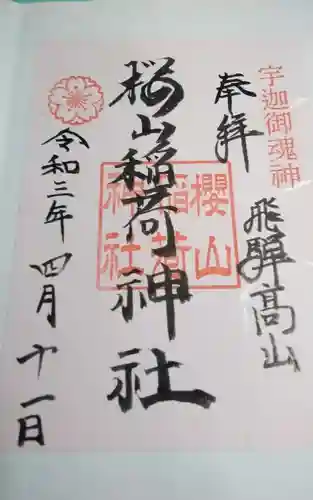 宇迦御魂神
奉拝
飛騨高山
桜山稲荷神社
櫻山
稲荷
神社
令和三年
四月
十一日